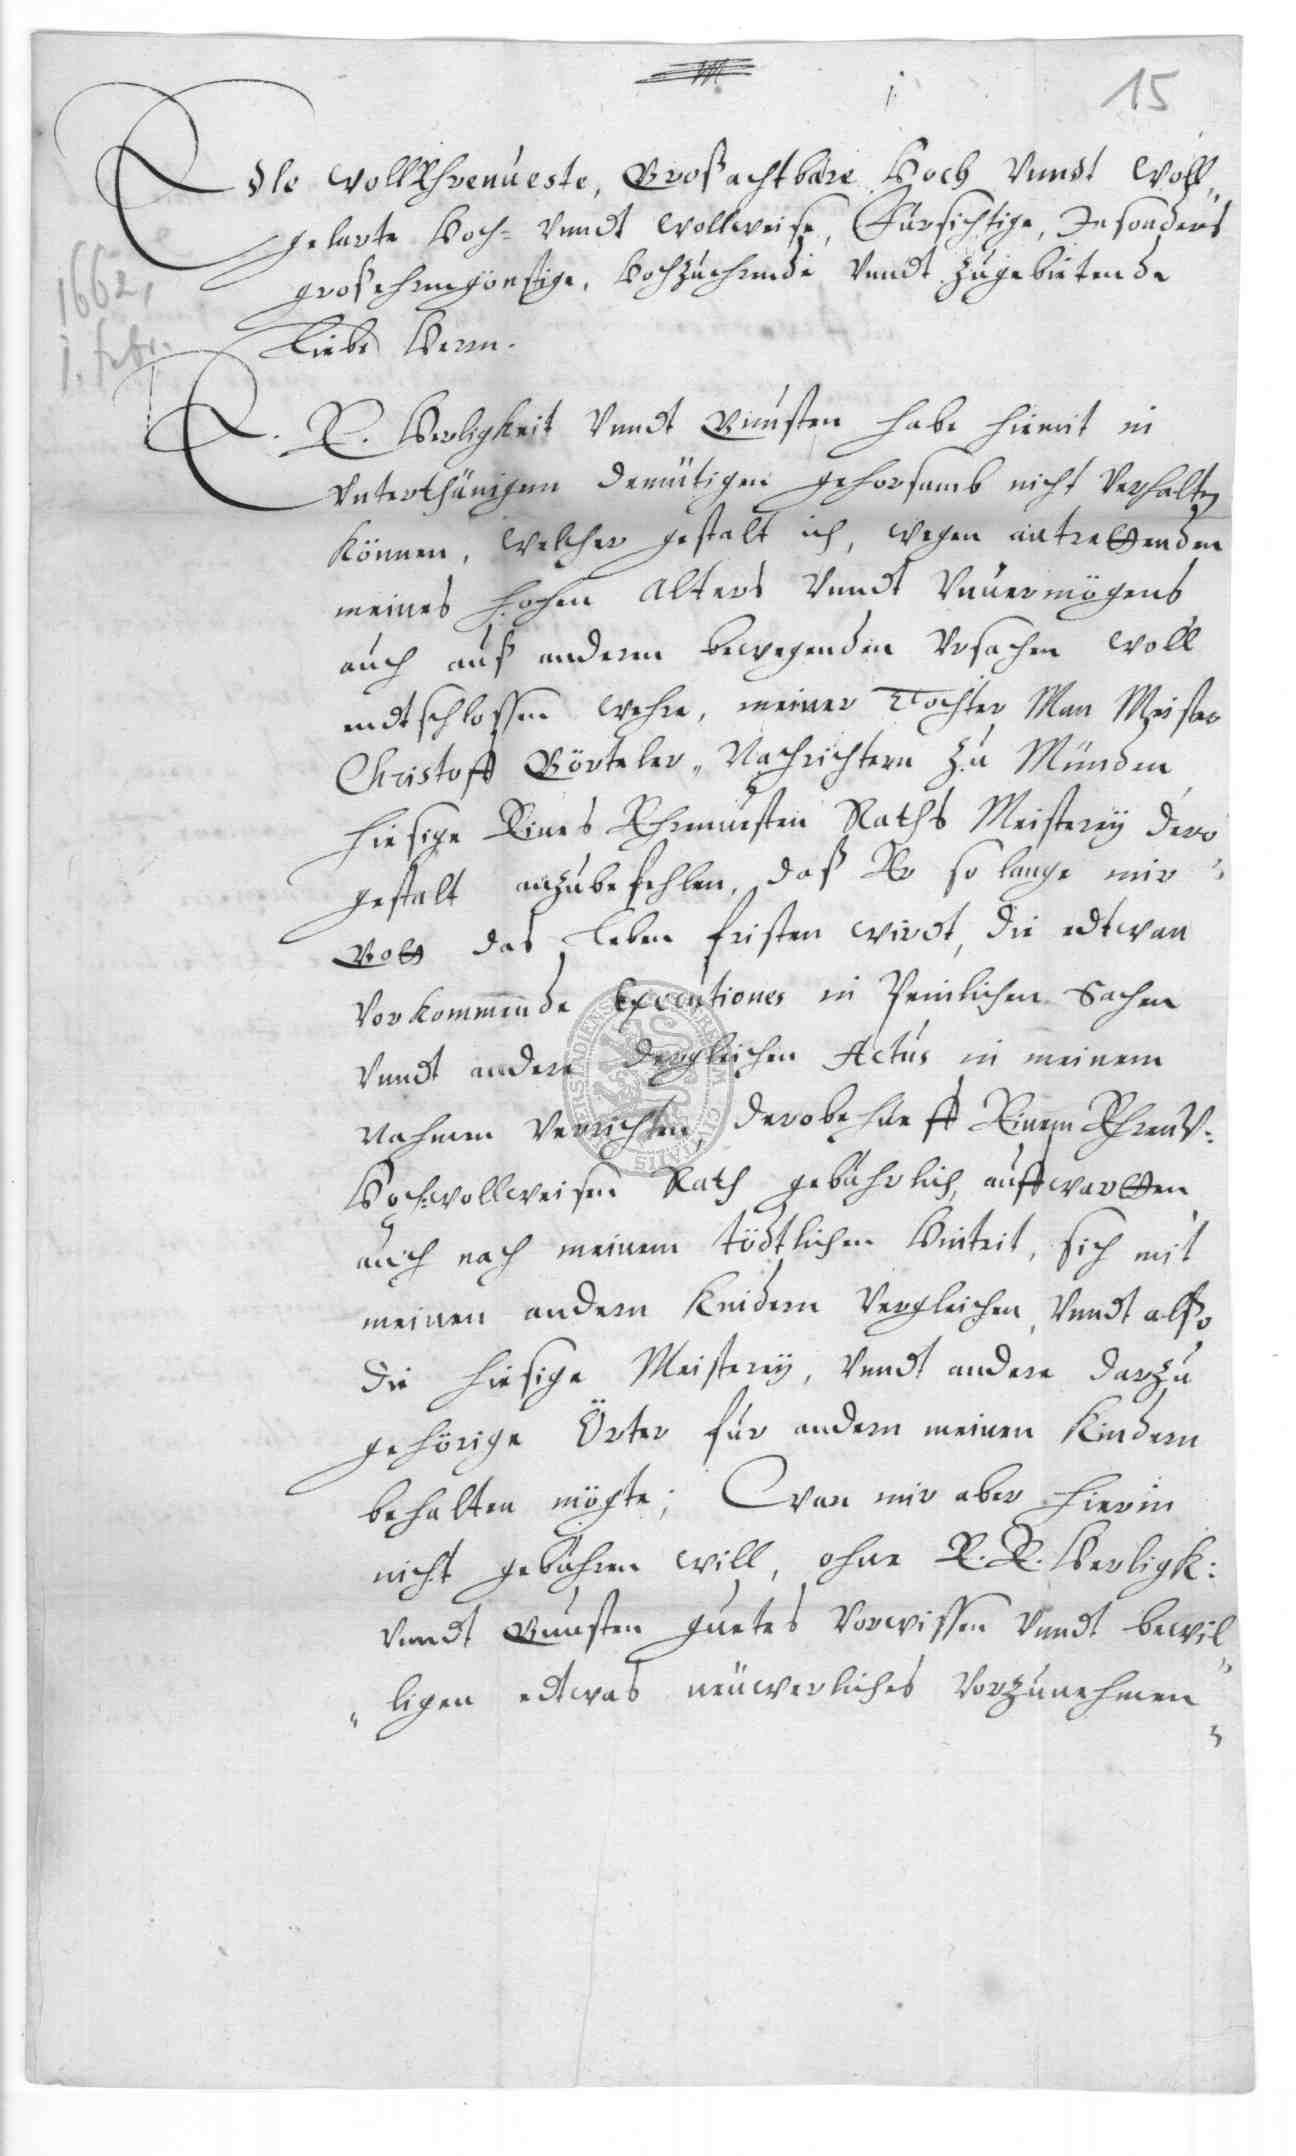 15
1662,
1. febr.
Edle WollEhrenueste, Großachtbare Hoch Vnndt Woll„
gelarte Hoch= Vnndt Wollweise, Fürsichtige, Insonders
großehrngönstige, Hochzuehrende Vnndt zugebietende
Liebe Herrn.
E. E. Herligkeit Vnndt Gunsten habe hiemit in
Vnterthänigem demütigen gehorsamb nicht Verhalten
können, Welcher gestalt ich, wegen antrettenden
meines hohen Alters Vnndt Vnuermögens
auch auß anderm bewegenden Vrsachen Woll
endtschlossen wehre, meiner Tochter Man Meister
Christoff Görteler„ Nachrichtern Zu Münden
hiesige Eines Ehrnuesten Raths Meisterey dero
gestalt anzubefehlen, daß Er so lange mir
Gott das Leben fristen wirdt, die edtwan
Vorkommende Executiones in Peinlichen Sachen
Vnndt andere dergleichen Actus in meinem
Nahmen Verrichten, derobehueff Einem EhrnV:
Hoch: wollweisen Rath gebührlich auffwartten
auch nach meinem tödtlichen Hintrit, sich mit
meinen andern Kindern Vergleichen, Vnndt also
die hiesige Meisterey, Vnndt andere darzu
gehörige Örter für andern meinen Kindern
behalten mögte; Wan mir aber hierin
nicht gebühren will, ohne E. E. Herligk:
Vnndt Gunsten guetes Vorwissen Vnndt bewil„
„ligen edtwas neuwerliches Vorzunehmen